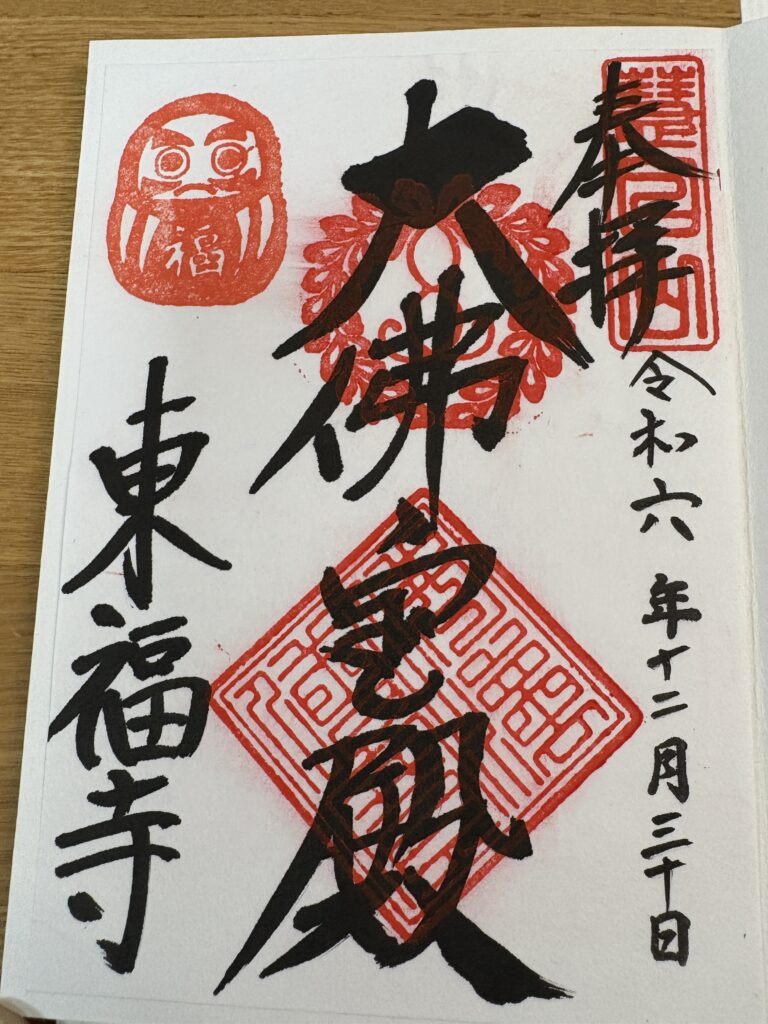 慧日山
奉拝
令和六年十二月三十日
大佛宝殿
福
東福寺